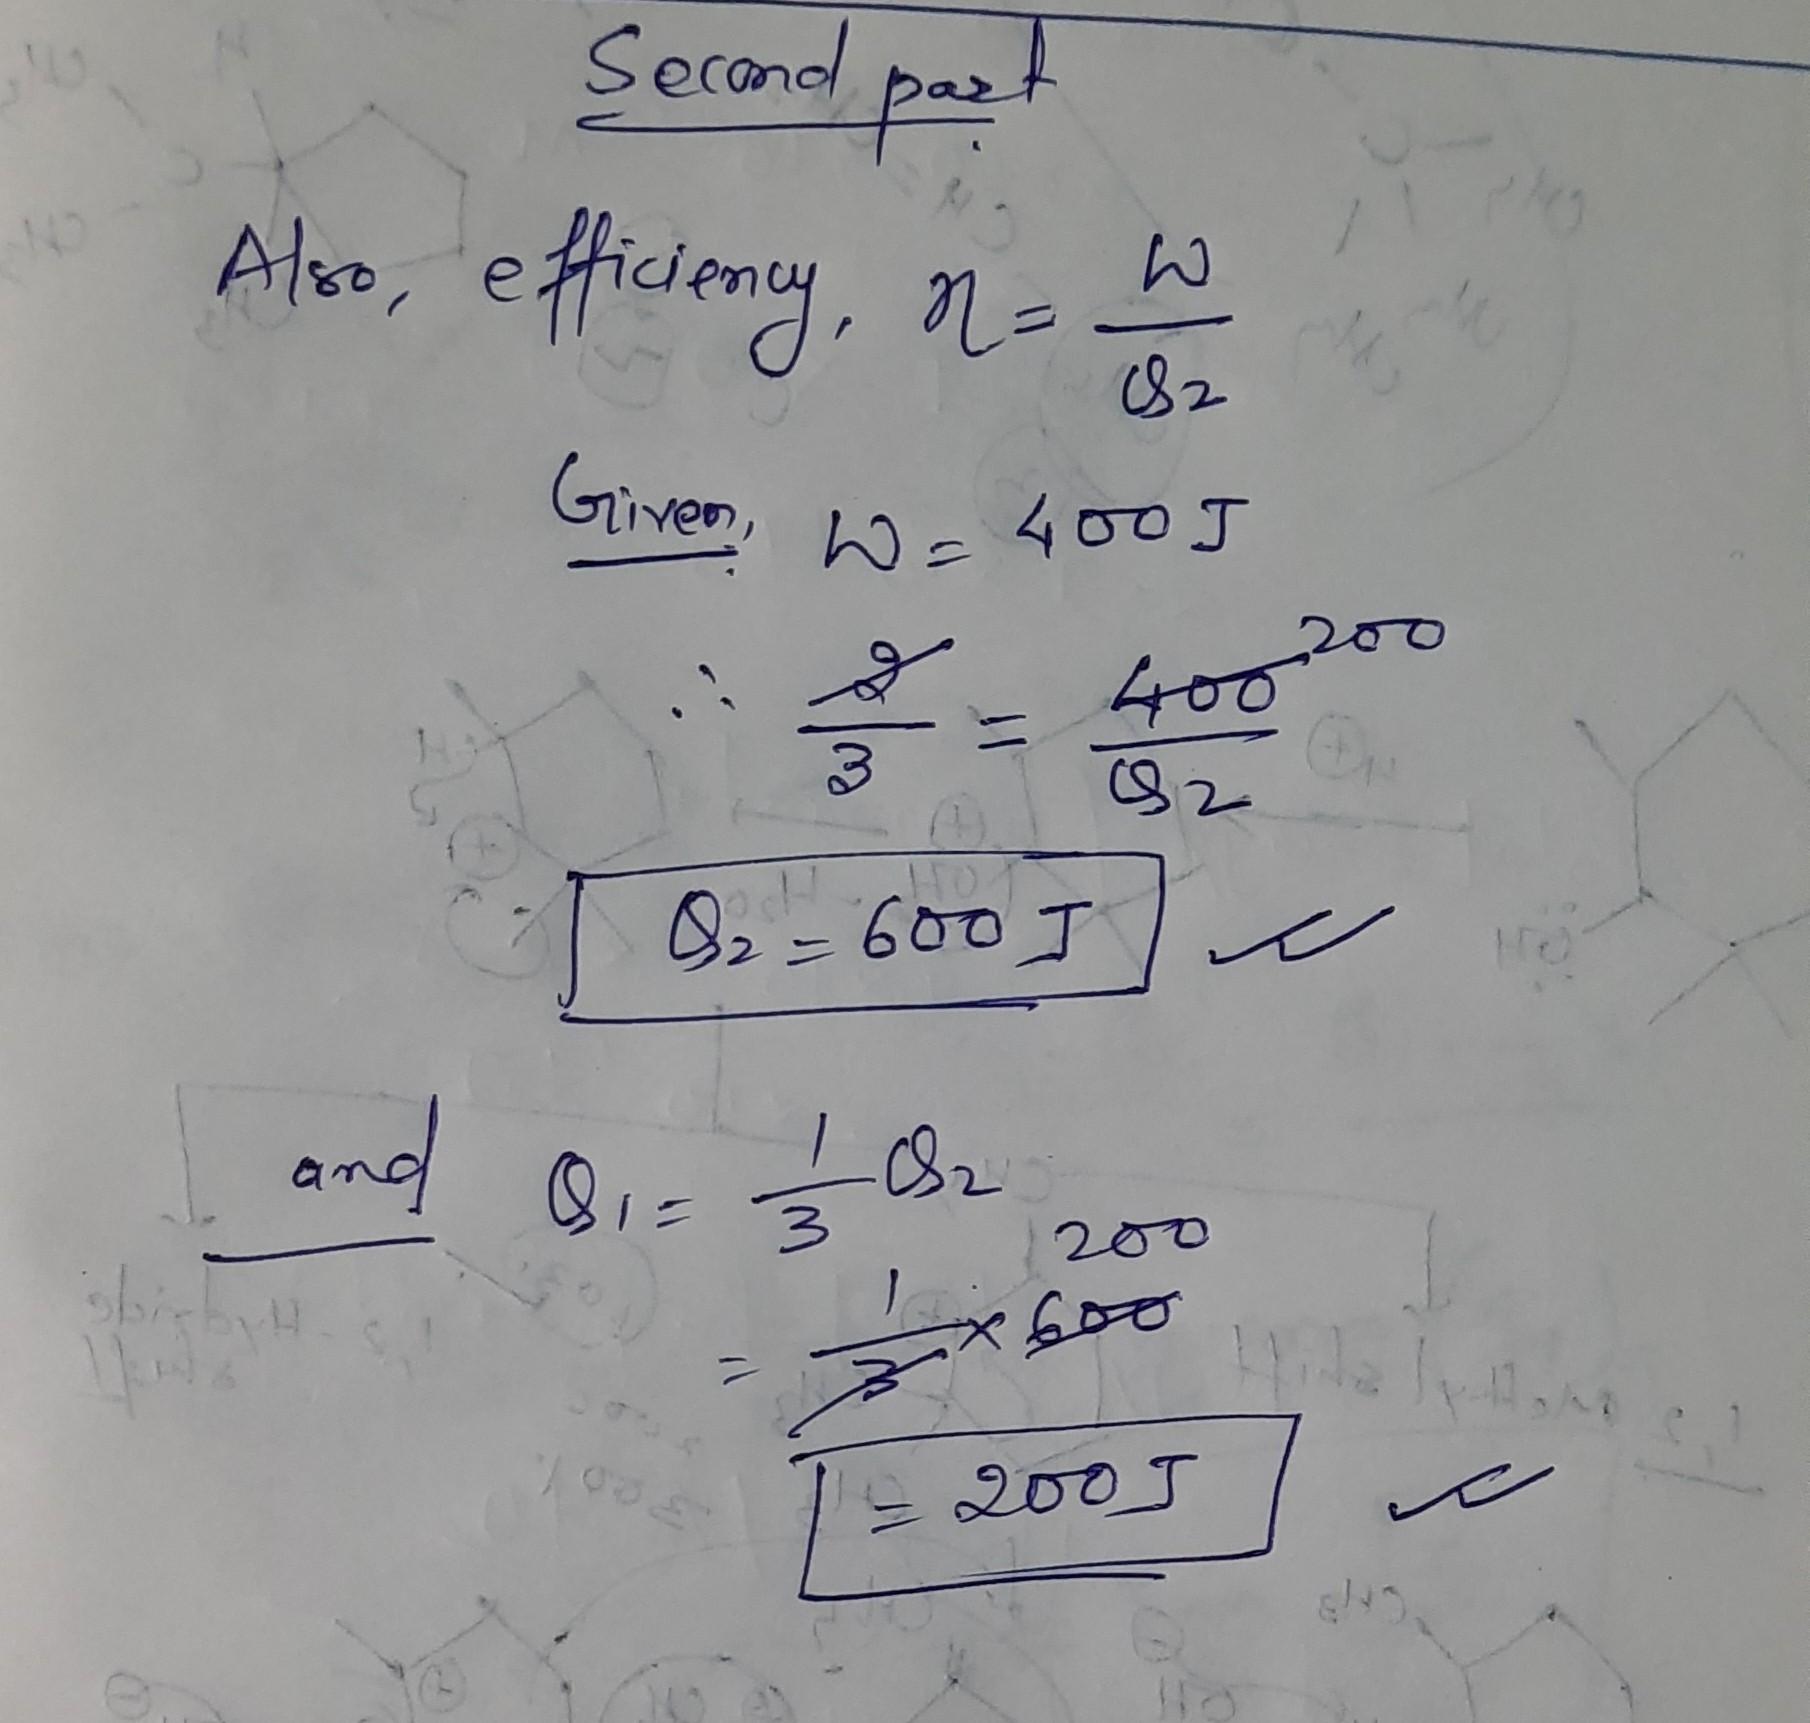 Second part
Also, efficiency, η = W/Q2
Given, W = 400 J
∴ 2/3 = 400/Q2 200
Q2 = 600 J
and Q1 = 1/3 Q2
200
= 1/3 × 600
= 200 J